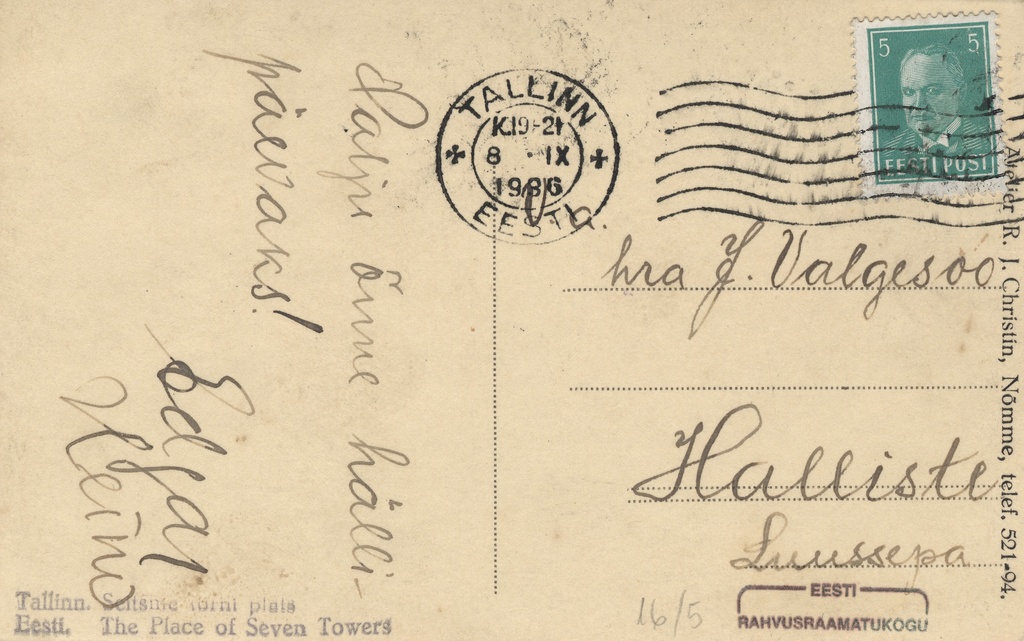 Palju õnne hälli-
päevaks!
Edgar
Heino
TALLINN
K.19-21
8 · IX
1936
EESTI
5 5
EESTI POST
hra J. Valgesoo
Halliste
Luussepa
Atelier R. J. Christin, Nõmme, telef. 521-94.
Tallinn. Seitsme torni plats
Eesti. The Place of Seven Towers
16/5
EESTI
RAHVUSRAAMATUKOGU